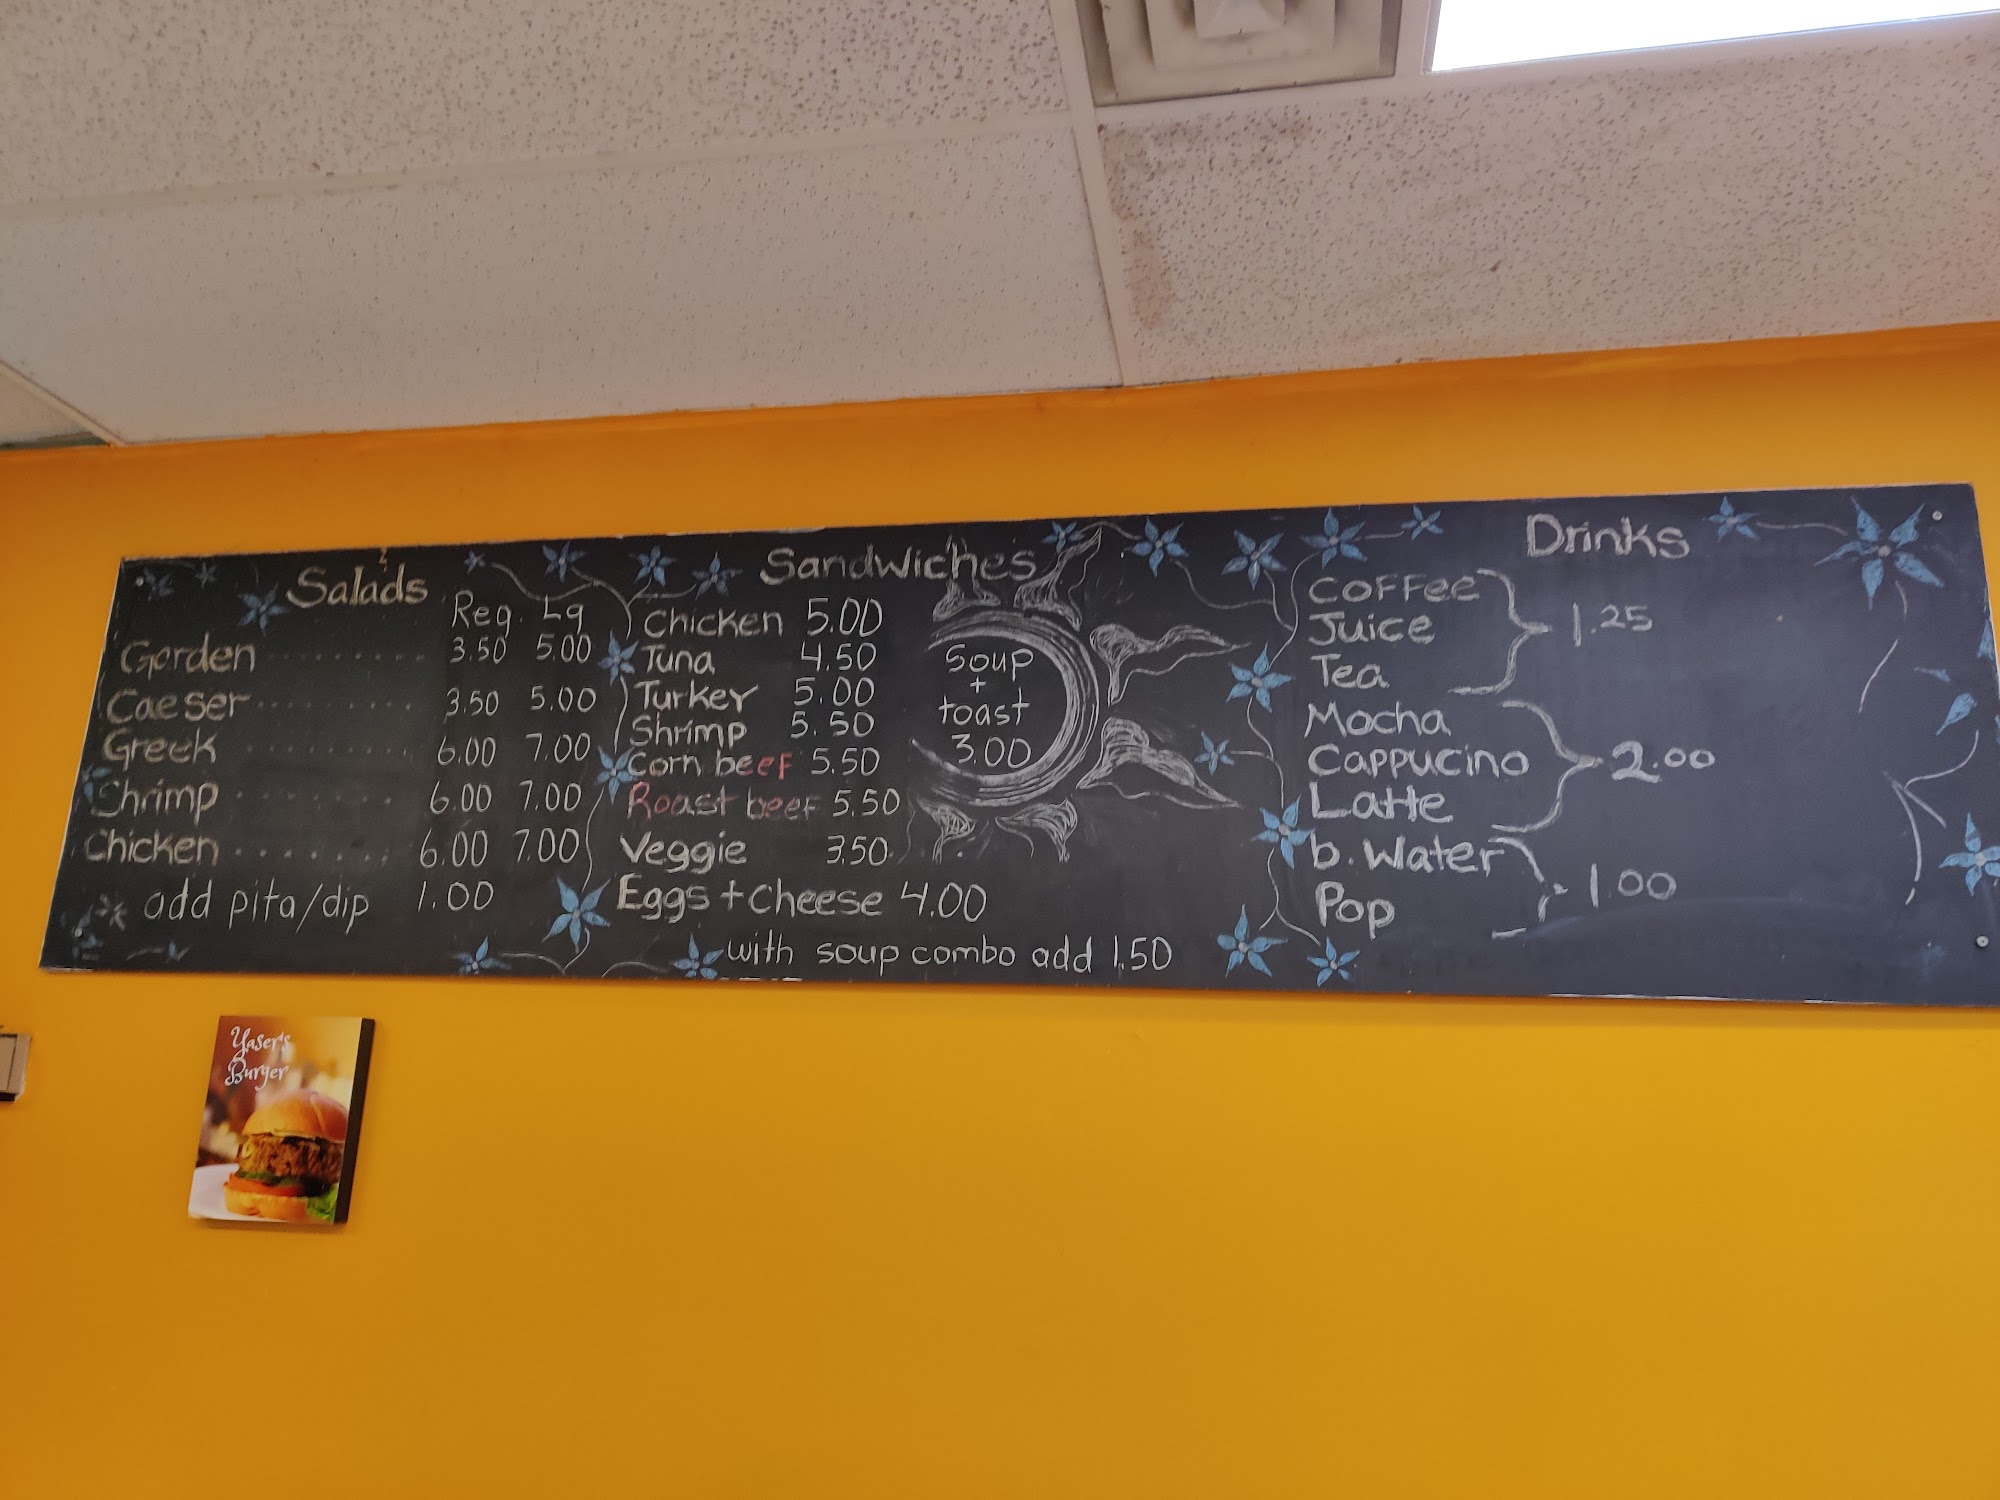 Salads
Reg. Lg
Garden 3.50 5.00
Caeser 3.50 5.00
Greek 6.00 7.00
Shrimp 6.00 7.00
Chicken 6.00 7.00
add pita/dip 1.00
Sandwiches
Chicken 5.00
Tuna 4.50
Turkey 5.00
Shrimp 5.50
Corn beef 5.50
Roast beef 5.50
Veggie 3.50
Eggs + cheese 4.00
with soup combo add 1.50
Soup
+
toast
3.00
Drinks
Coffee
Juice
Tea
1.25
Mocha
Cappucino
Latte
2.00
b. Water
Pop
1.00
Yaser's
Burger